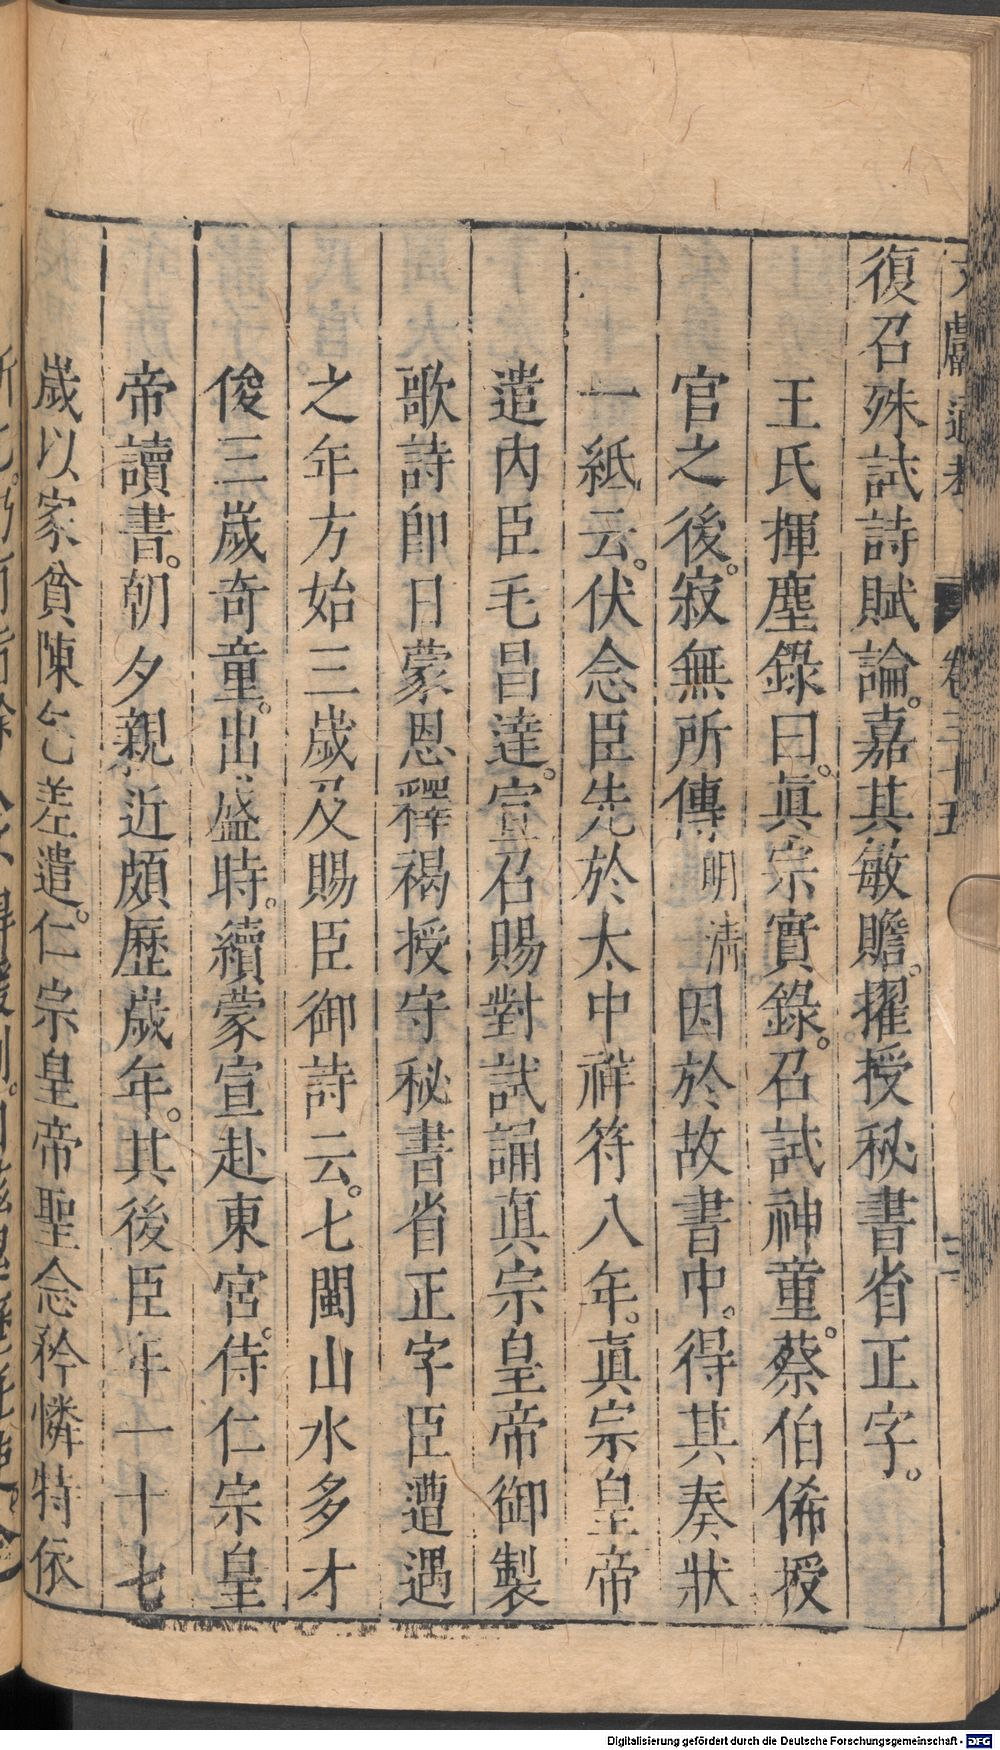 文獻通考 卷三十五 三
復召殊試詩賦論。嘉其敏贍。擢授秘書省正字。
王氏揮塵錄曰。真宗實錄。召試神童。蔡伯俙授
官之後。寂無所傳。明清因於故書中。得其奏狀
一紙云。伏念臣先於大中祥符八年。真宗皇帝
遣內臣毛昌達。宣召賜對試誦真宗皇帝御製
歌詩即日蒙恩釋褐授守秘書省正字臣遭遇
之年方始三歲及賜臣御詩云。七閩山水多才
俊三歲奇童。出盛時。續蒙宣赴東宮。侍仁宗皇
帝讀書。朝夕親近頗歷歲年。其後臣年一十七
歲以家貧陳乞差遣。仁宗皇帝聖念矜憐特依
Digitalisierung gefördert durch die Deutsche Forschungsgemeinschaft - DFG